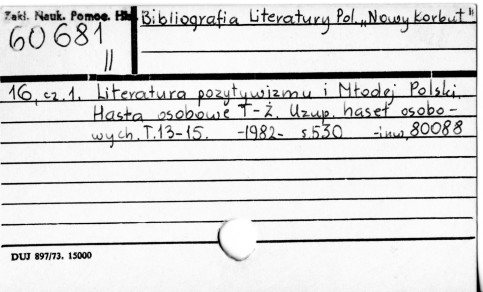 Zakł. Nauk. Pomoc. Hist.
60681
II
Bibliografia Literatury Pol. „Nowy Korbut"
16, cz.1. Literatura pozytywizmu i Młodej Polski.
Hasła osobowe T-Ż. Uzup. haseł osobo-
wych. T.13-15. -1982- s.530 -inw. 80088
DUJ 897/73. 15000